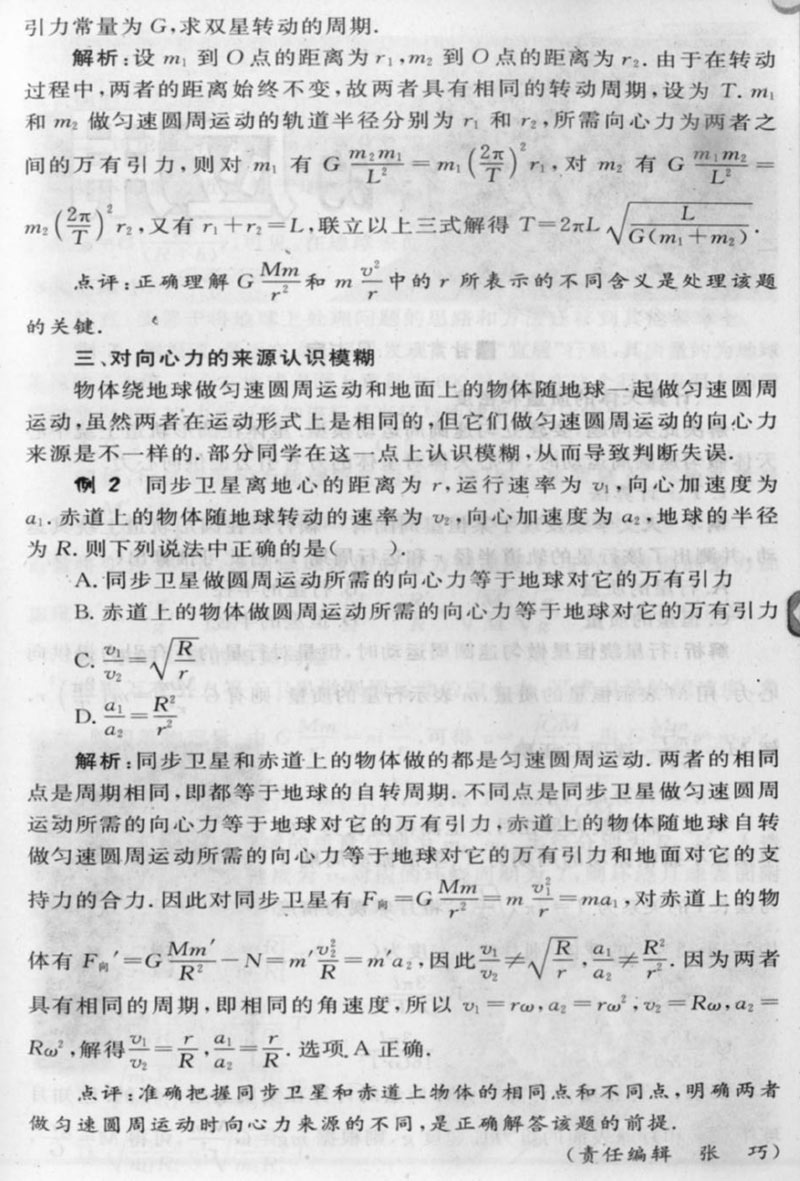 引力常量为 G,求双星转动的周期.
解析:设 m₁ 到 O 点的距离为 r₁,m₂ 到 O 点的距离为 r₂. 由于在转动
过程中,两者的距离始终不变,故两者具有相同的转动周期,设为 T. m₁
和 m₂ 做匀速圆周运动的轨道半径分别为 r₁ 和 r₂,所需向心力为两者之
间的万有引力,则对 m₁ 有 G m₂m₁/L² = m₁(2π/T)² r₁,对 m₂ 有 G m₁m₂/L² =
m₂(2π/T)² r₂,又有 r₁+r₂=L,联立以上三式解得 T=2πL√(L/G(m₁+m₂)).
点评:正确理解 G Mm/r² 和 m v²/r 中的 r 所表示的不同含义是处理该题
的关键.
三、对向心力的来源认识模糊
物体绕地球做匀速圆周运动和地面上的物体随地球一起做匀速圆周
运动,虽然两者在运动形式上是相同的,但它们做匀速圆周运动的向心力
来源是不一样的. 部分同学在这一点上认识模糊,从而导致判断失误.
例 2 同步卫星离地心的距离为 r,运行速率为 v₁,向心加速度为
a₁. 赤道上的物体随地球转动的速率为 v₂,向心加速度为 a₂,地球的半径
为 R. 则下列说法中正确的是( ).
A. 同步卫星做圆周运动所需的向心力等于地球对它的万有引力
B. 赤道上的物体做圆周运动所需的向心力等于地球对它的万有引力
C. v₁/v₂=√(R/r)
D. a₁/a₂=R²/r²
解析:同步卫星和赤道上的物体做的都是匀速圆周运动. 两者的相同
点是周期相同,即都等于地球的自转周期. 不同点是同步卫星做匀速圆周
运动所需的向心力等于地球对它的万有引力,赤道上的物体随地球自转
做匀速圆周运动所需的向心力等于地球对它的万有引力和地面对它的支
持力的合力. 因此对同步卫星有 F向=G Mm/r²=m v₁²/r=ma₁,对赤道上的物
体有 F向′=G Mm′/R²−N=m′ v₂²/R=m′a₂,因此 v₁/v₂≠√(R/r),a₁/a₂≠R²/r². 因为两者
具有相同的周期,即相同的角速度,所以 v₁=rω,a₂=rω²,v₂=Rω,a₂=
Rω²,解得 v₁/v₂=r/R,a₁/a₂=r/R. 选项 A 正确.
点评:准确把握同步卫星和赤道上物体的相同点和不同点,明确两者
做匀速圆周运动时向心力来源的不同,是正确解答该题的前提.
(责任编辑 张 巧)